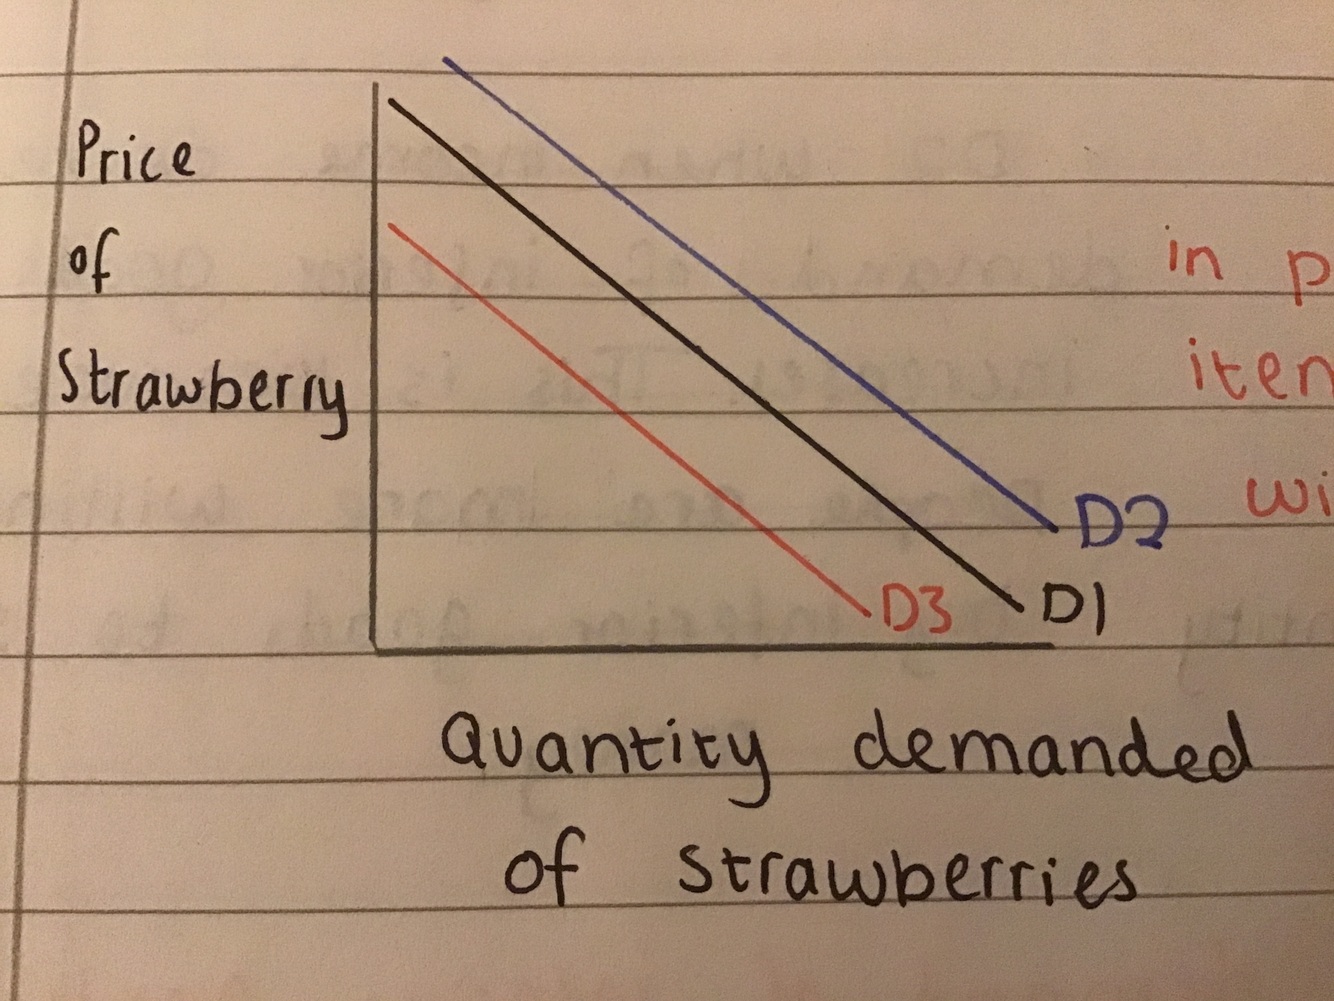 Price
of
Strawberry
in p
iten
wi
D2
D1
D3
Quantity demanded
of strawberries